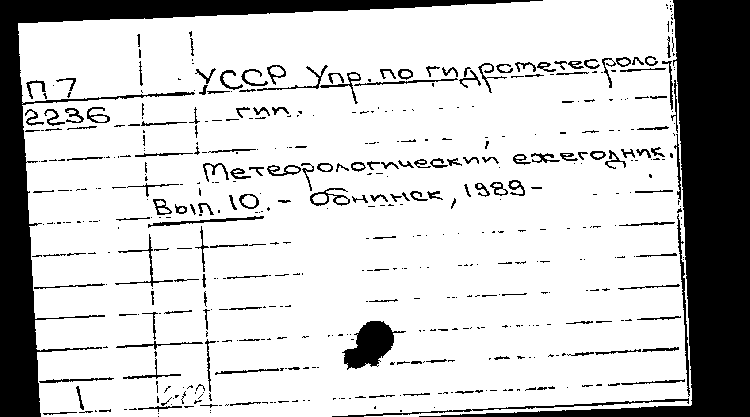 П7 УССР. Упр. по гидрометеороло-
2236 гии.
Метеорологический ежегодник.
Вып. 10. - Обнинск, 1989-
1